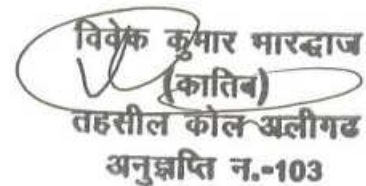 विवेक कुमार भारद्वाज
(कातिब)
तहसील कोल अलीगढ
अनुज्ञप्ति न.-103